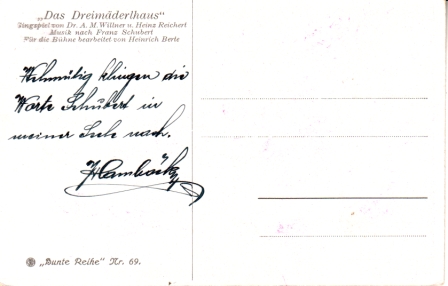 „Das Dreimäderlhaus"
Singspiel von Dr. A. M. Willner u. Heinz Reichert
Musik nach Franz Schubert
Für die Bühne bearbeitet von Heinrich Berte
Wehmütig klingen die
Worte Schubert in
meiner Seele nach.
„Bunte Reihe" Nr. 69.